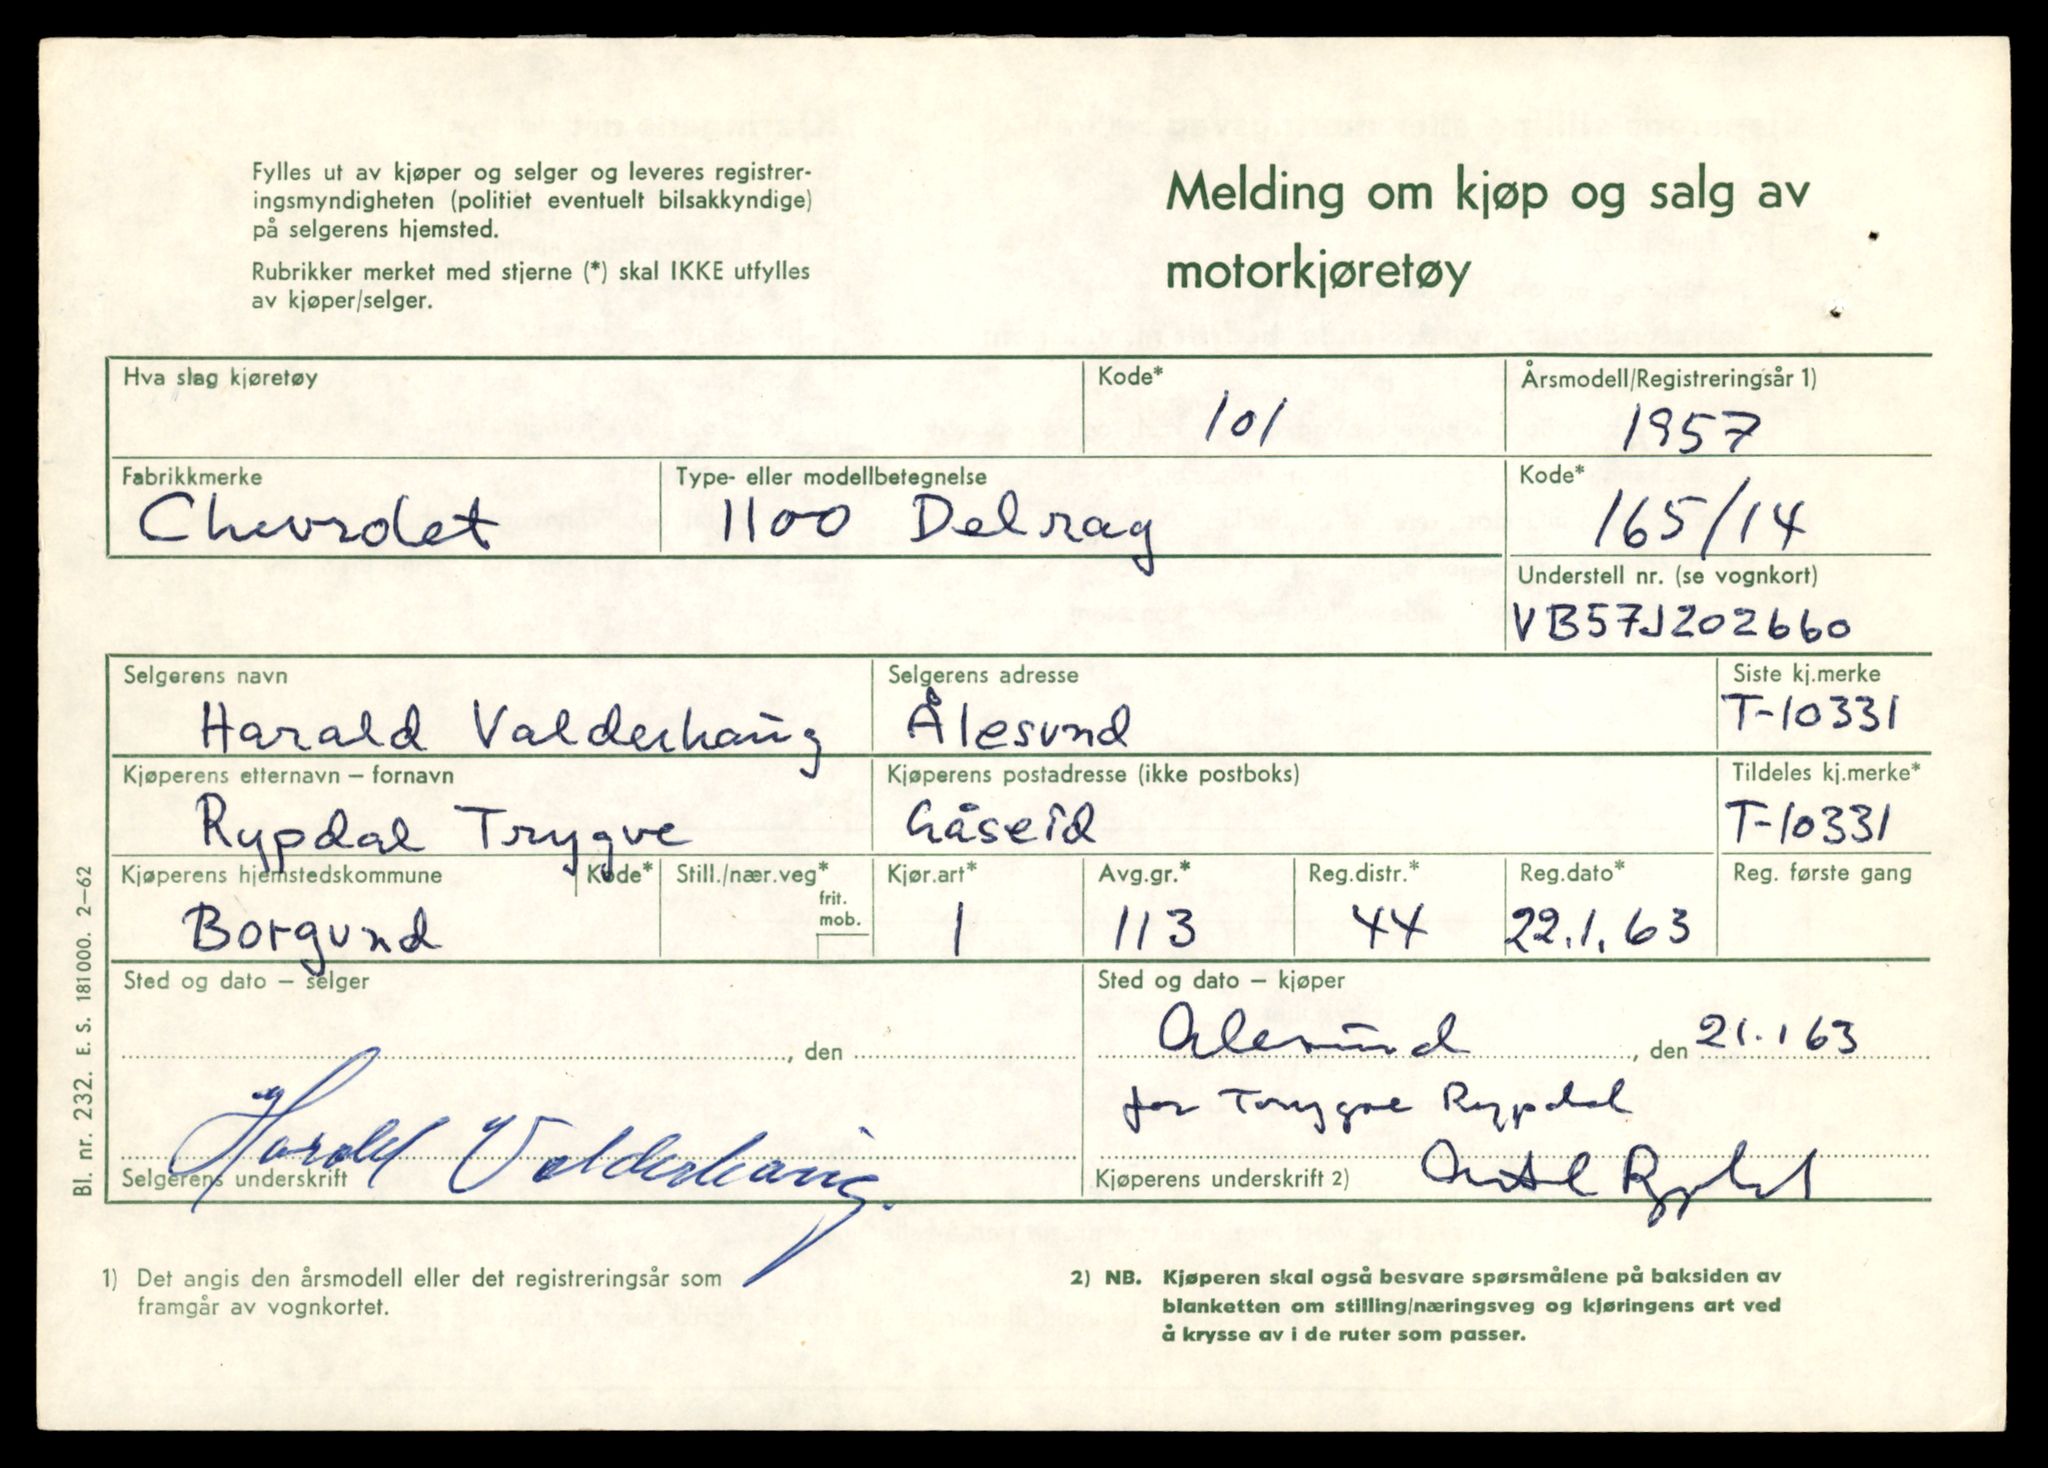 Fylles ut av kjøper og selger og leveres registrer-
ingsmyndigheten (politiet eventuelt bilsakkyndige)
på selgerens hjemsted.
Rubrikker merket med stjerne (*) skal IKKE utfylles
av kjøper/selger.
Melding om kjøp og salg av
motorkjøretøy
Hva slag kjøretøy
Kode*
101
Årsmodell/Registreringsår 1)
1957
Fabrikkmerke
Chevrolet
Type- eller modellbetegnelse
1100 Delray
Kode*
165/14
Understell nr. (se vognkort)
VB57J202660
Selgerens navn
Harald Valderhaug
Selgerens adresse
Ålesund
Siste kj.merke
T-10331
Kjøperens etternavn – fornavn
Rypdal Trygve
Kjøperens postadresse (ikke postboks)
Gåseid
Tildeles kj.merke*
T-10331
Kjøperens hjemstedskommune
Borgund
Kode*
Still./nær.veg*
frit.
mob.
Kjør.art*
1
Avg.gr.*
113
Reg.distr.*
44
Reg.dato*
22.1.63
Reg. første gang
Sted og dato – selger
, den
Sted og dato – kjøper
Alesund, den 21.1 63
for Trygve Rypdal
Harald Valderhaug.
Selgerens underskrift
Kjøperens underskrift 2) Rypdal
1) Det angis den årsmodell eller det registreringsår som
framgår av vognkortet.
2) NB. Kjøperen skal også besvare spørsmålene på baksiden av
blanketten om stilling/næringsveg og kjøringens art ved
å krysse av i de ruter som passer.
Bl. nr. 232. E. S. 181000. 2–62